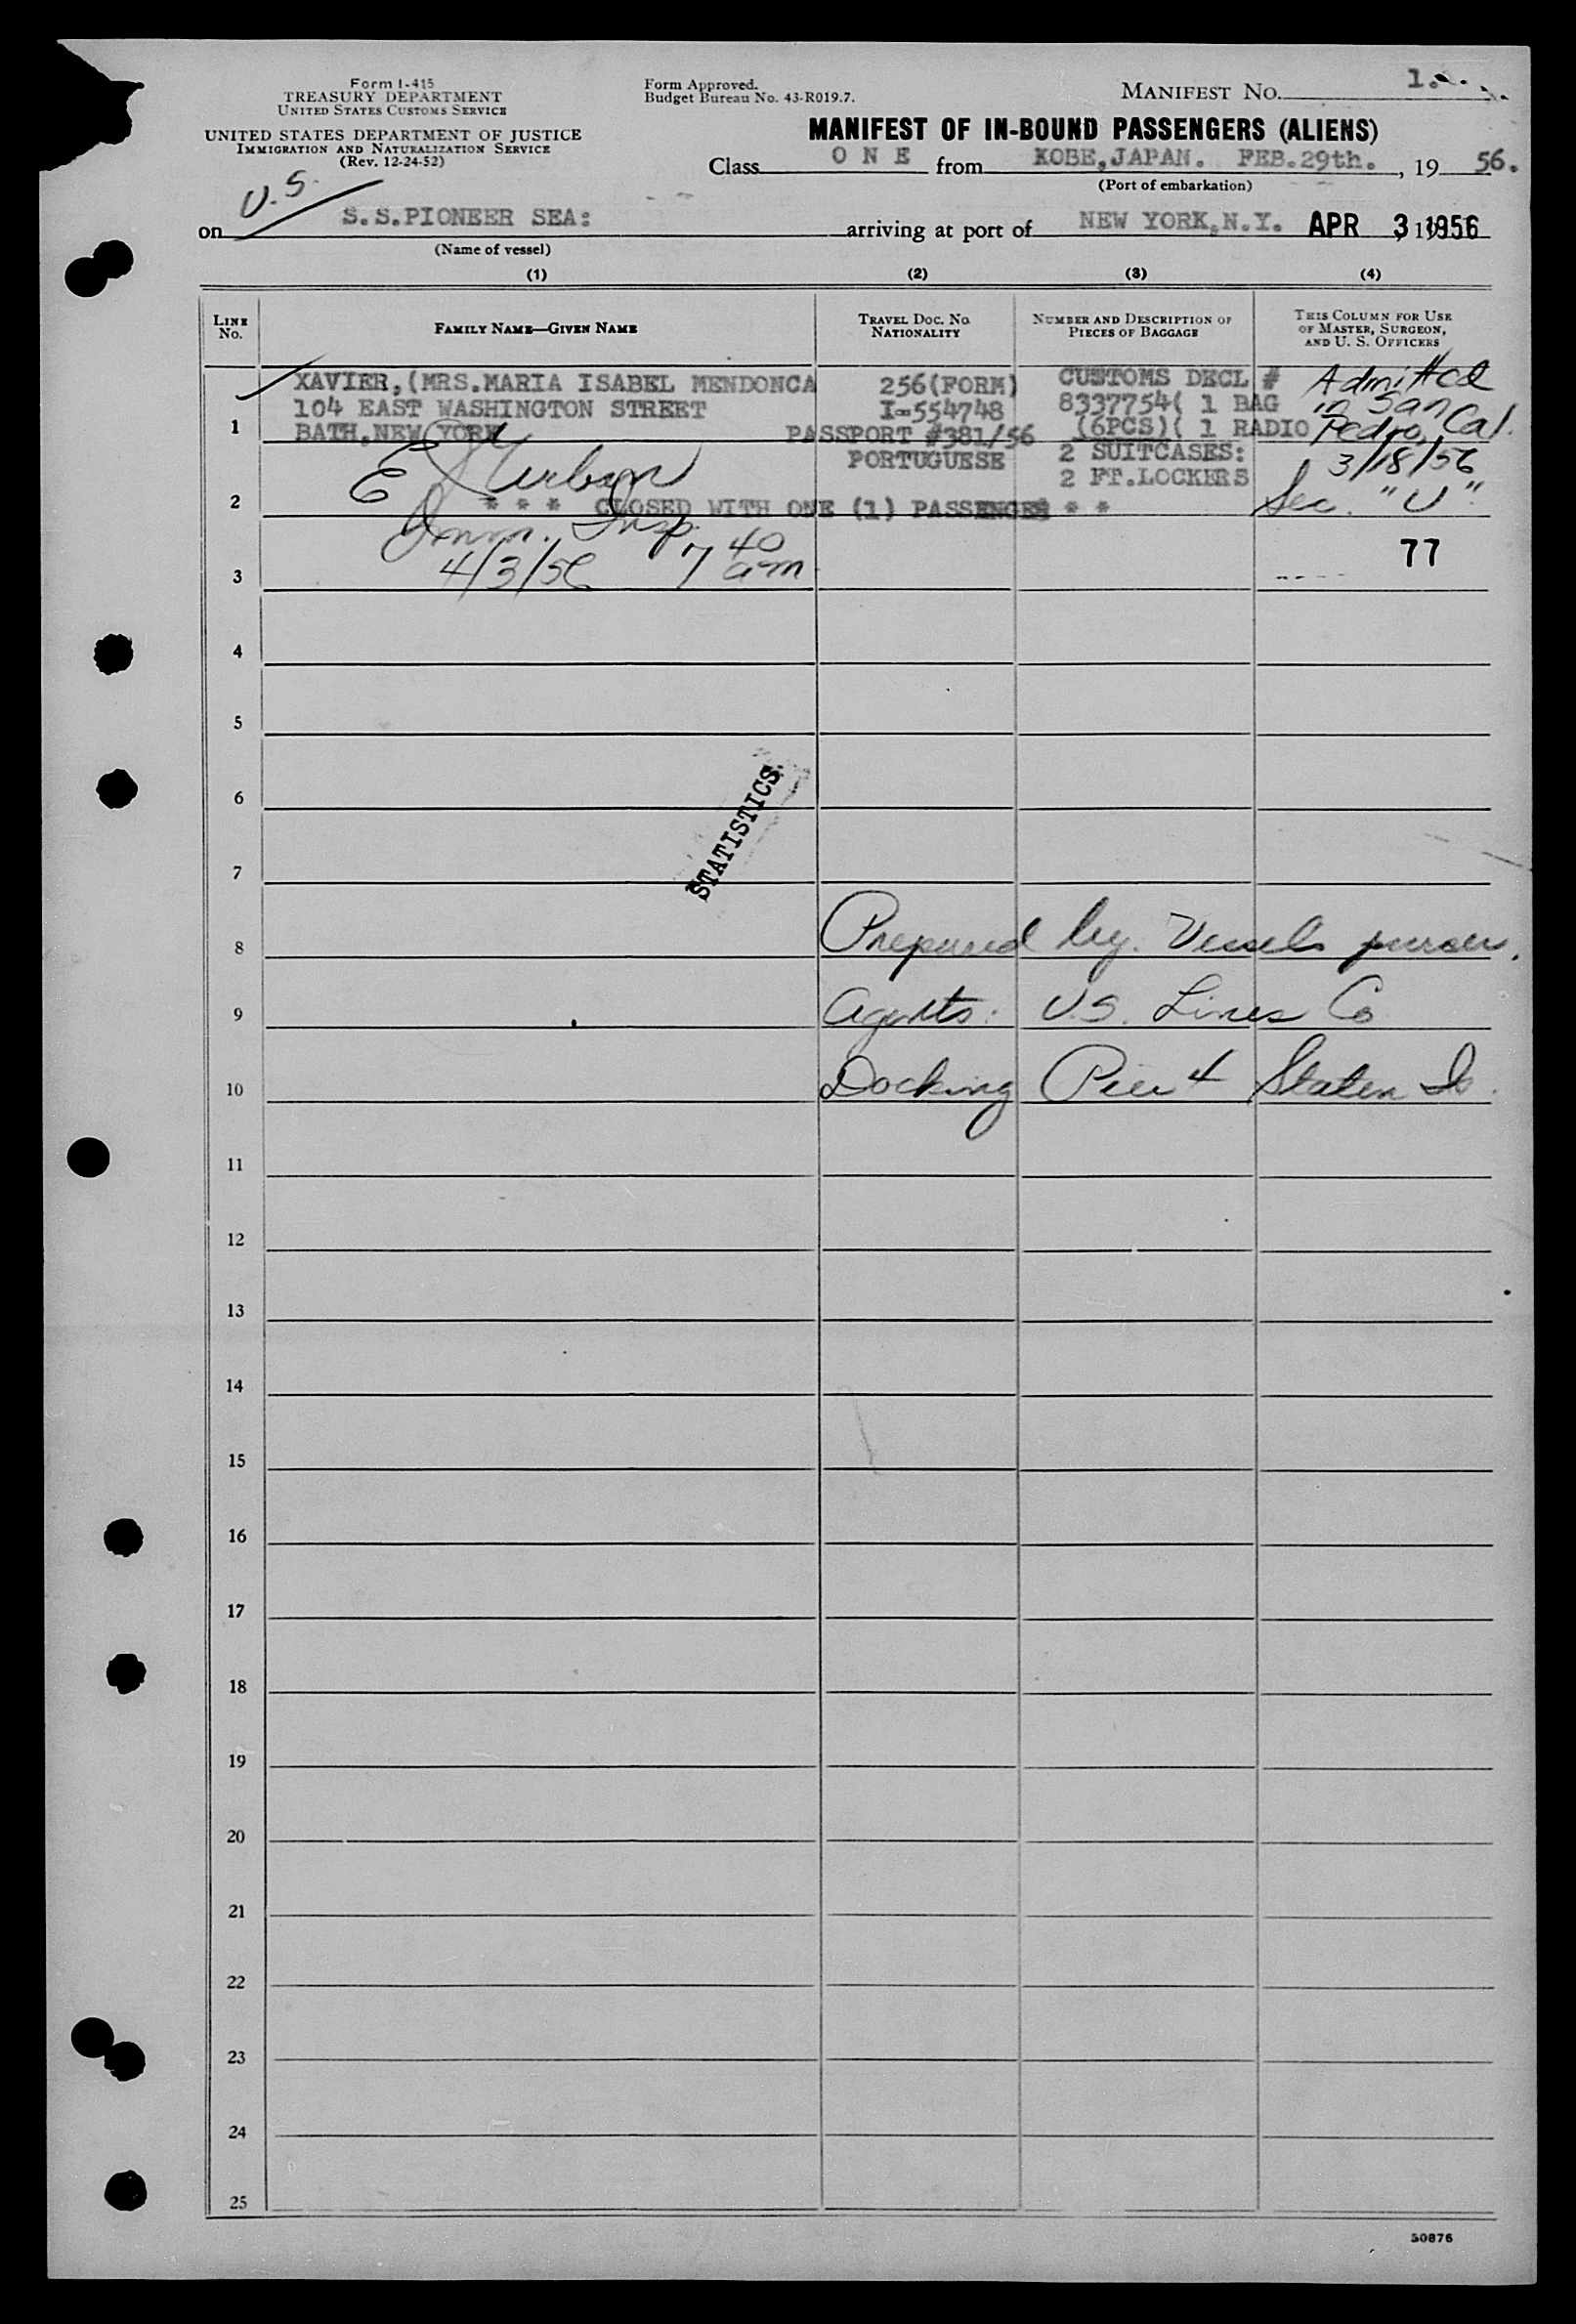 Form I-415
TREASURY DEPARTMENT
UNITED STATES CUSTOMS SERVICE
UNITED STATES DEPARTMENT OF JUSTICE
IMMIGRATION AND NATURALIZATION SERVICE
(Rev. 12-24-52)
Form Approved.
Budget Bureau No. 43-R019.7.
MANIFEST NO. 1.
MANIFEST OF IN-BOUND PASSENGERS (ALIENS)
Class O N E from KOBE,JAPAN. FEB.29th. , 19 56.
(Port of embarkation)
U.S.
on S.S.PIONEER SEA: arriving at port of NEW YORK,N.Y. APR 3 1956
(Name of vessel)
(1) (2) (3) (4)
LINE No. FAMILY NAME—GIVEN NAME TRAVEL DOC. NO. NATIONALITY NUMBER AND DESCRIPTION OF PIECES OF BAGGAGE THIS COLUMN FOR USE OF MASTER, SURGEON, AND U. S. OFFICERS
XAVIER,(MRS.MARIA ISABEL MENDONCA 256(FORM) CUSTOMS DECL # Admitted
104 EAST WASHINGTON STREET I-554748 8337754( 1 BAG in San
1 BATH,NEW YORK PASSPORT #381/56 (6PCS)( 1 RADIO Pedro, Cal.
PORTUGUESE 2 SUITCASES: 3/18/56
2 FT.LOCKERS
2 * * * CLOSED WITH ONE (1) PASSENGER * * Sec. "U"
Imm. Insp. 7 40 am
3 4/3/56 77
4
5
6
STATISTICS.
7
8 Prepared by. Vessels purser.
9 Agents: U.S. Lines Co
10 Docking Pier 4 Staten Is.
11
12
13
14
15
16
17
18
19
20
21
22
23
24
25
50876